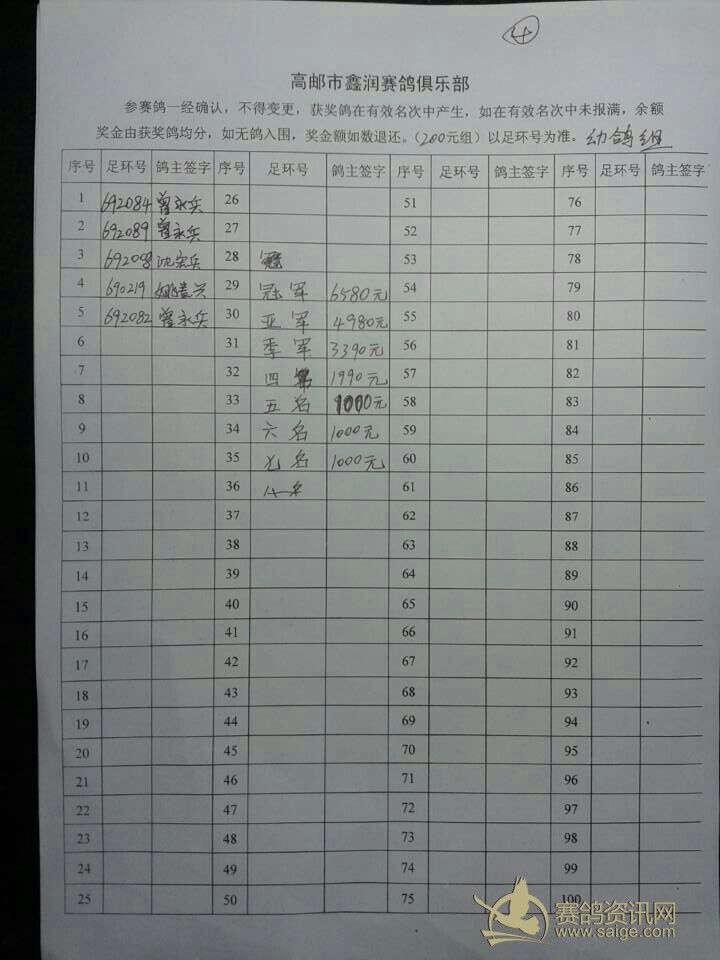 4
高邮市鑫润赛鸽俱乐部
参赛鸽一经确认，不得变更，获奖鸽在有效名次中产生，如在有效名次中未报满，余额
奖金由获奖鸽均分，如无鸽入围，奖金额如数退还。（200元组）以足环号为准。幼鸽组
序号 足环号 鸽主签字 序号 足环号 鸽主签字 序号 足环号 鸽主签字 序号 足环号 鸽主签字
1 692084 曾永兵 26 51 76
2 692089 曾永兵 27 52 77
3 692008 沈宏兵 28 53 78
4 690219 姚 兴 29 冠军 6580元 54 79
5 692082 曾永兵 30 亚军 4980元 55 80
6 31 季军 3390元 56 81
7 32 四 1990元 57 82
8 33 五名 1000元 58 83
9 34 六名 1000元 59 84
10 35 七名 1000元 60 85
11 36 八名 61 86
12 37 62 87
13 38 63 88
14 39 64 89
15 40 65 90
16 41 66 91
17 42 67 92
18 43 68 93
19 44 69 94
20 45 70 95
21 46 71 96
22 47 72 97
23 48 73 98
24 49 74 99
25 50 75 100
赛鸽资讯网
www.saige.com